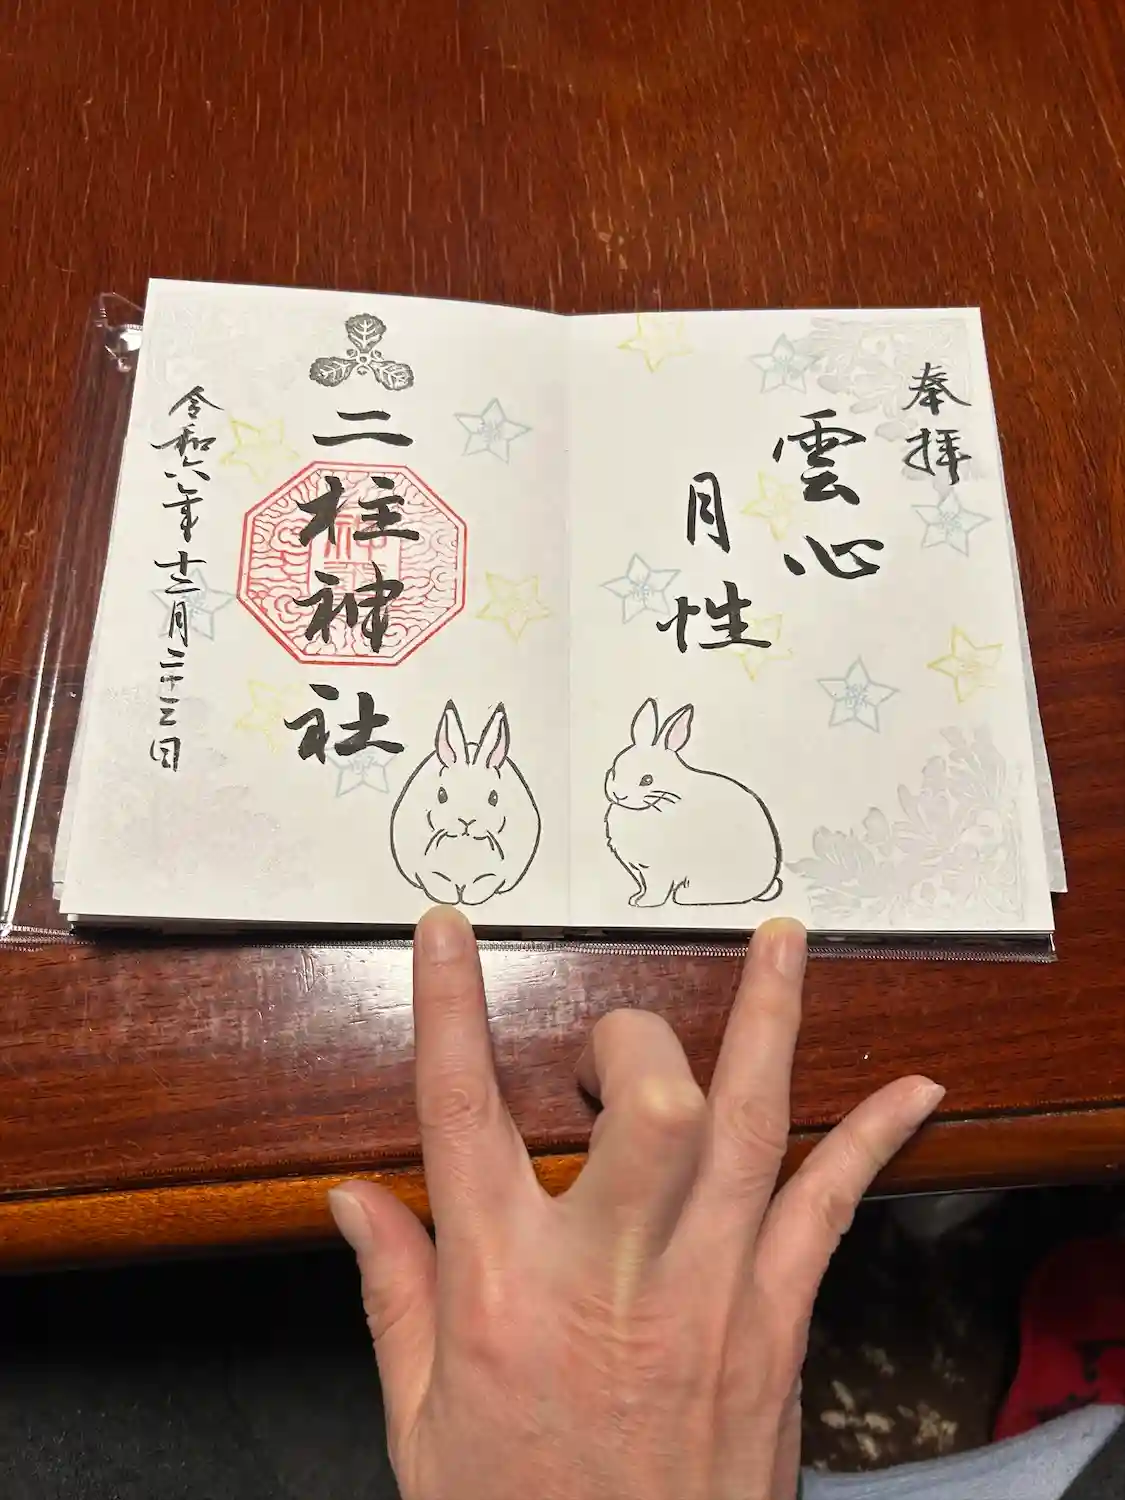 奉拝
雲心
月性
二柱神社
令和六年十二月二十三日